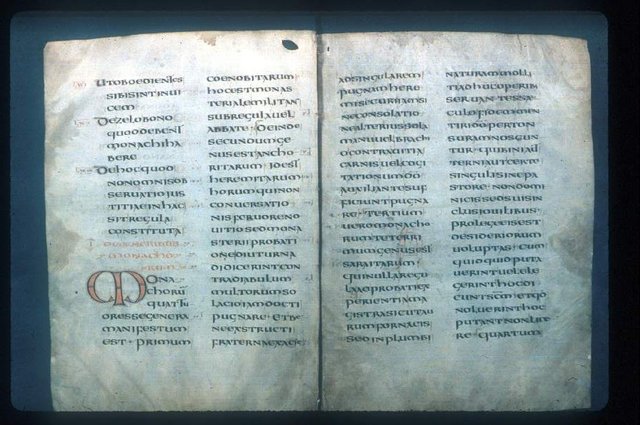 UTOBOEDIENTES
SIBISINTINUI
CEM
DEZELOBONO
QUODEBENT
MONACHIHA
BERE
DEHOCQUOD
NONOMNISOB
SERUATIOIUS
TITIAEINHAC
SITREGULA
CONSTITUTA
I DEGENERIBUS
MONACHO
RUM
MONA
CHORU
QUATTU
ORESSEGENERA
MANIFESTUM
EST PRIMUM
COENOBITARUM
HOCESTMONAS
TERIALEMILITAN
SUBREGULAUEL
ABBATE DEINDE
SECUNDUMGE
NUSESTANCHO
RITARUM IDEST
HEREMITARUM
HORUMQUINON
CONUERSATIO
NISFERUORENO
UITIOSEDMONA
STERIIPROBATI
ONEDIUTURNA
DIDICERINTCON
TRADIABULUM
MULTORUMSO
LACIOIAMDOCTI
PUGNARE ETBE
NEEXSTRUCTI
FRATERNAEXACIE
ADSINGULAREM
PUGNAMHERE
MISECURIIAMSI
NECONSOLATIO
NEALTERIUSSOLA
MANUUELBRACHI
OCONTRAUITIA
CARNISUELCOGI
TATIONUMDO
AUXILIANTESUF
FICIUNTPUGNA
RE TERTIUM
UEROMONACHO
RUMTETERRI
MUMGENUSEST
SARAITARUM
QUINULLAREGU
PERIENTIAMA
GISTRASICUTAU
RUMFORNACIS
SEDINPLUMBI
NATURAMOLLI
TIADHUCOPERIB
SERUANTESSAE
CULOFIDEMMEN
TIRIDOPERTON
SURAMNOSCUN
TUR QUIBINIAUT
TERNIAUTCERTE
SINGULISINEPA
STORE NONDOMI
NICISSEDSUISIN
CLUSIOUILIBUS
PROLEGEEISEST
DESIDERIORUM
UOLUPTAS CUM
QUIDQUIDPUTA
UERINTUELELE
GERINTHOCDI
CUNTSCM ETQD
NOLUERINTHOC
PUTANTNONLICE
RE QUARTUM